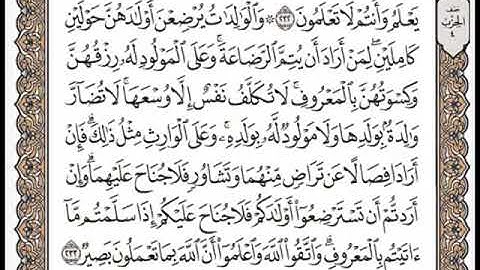 يَعْلَمُ وَأَنتُمْ لَا تَعْلَمُونَ ٢٣٢ ۞ وَالْوَالِدَاتُ يُرْضِعْنَ أَوْلَادَهُنَّ حَوْلَيْنِ
كَامِلَيْنِ لِمَنْ أَرَادَ أَن يُتِمَّ الرَّضَاعَةَ وَعَلَى الْمَوْلُودِ لَهُ رِزْقُهُنَّ
وَكِسْوَتُهُنَّ بِالْمَعْرُوفِ لَا تُكَلَّفُ نَفْسٌ إِلَّا وُسْعَهَا لَا تُضَارَّ
وَالِدَةٌ بِوَلَدِهَا وَلَا مَوْلُودٌ لَّهُ بِوَلَدِهِ وَعَلَى الْوَارِثِ مِثْلُ ذَٰلِكَ فَإِنْ
أَرَادَا فِصَالًا عَن تَرَاضٍ مِّنْهُمَا وَتَشَاوُرٍ فَلَا جُنَاحَ عَلَيْهِمَا وَإِنْ
أَرَدتُّمْ أَن تَسْتَرْضِعُوا أَوْلَادَكُمْ فَلَا جُنَاحَ عَلَيْكُمْ إِذَا سَلَّمْتُم مَّا
ءَاتَيْتُم بِالْمَعْرُوفِ وَاتَّقُوا اللَّهَ وَاعْلَمُوا أَنَّ اللَّهَ بِمَا تَعْمَلُونَ بَصِيرٌ ٢٣٣
الحزب
٤